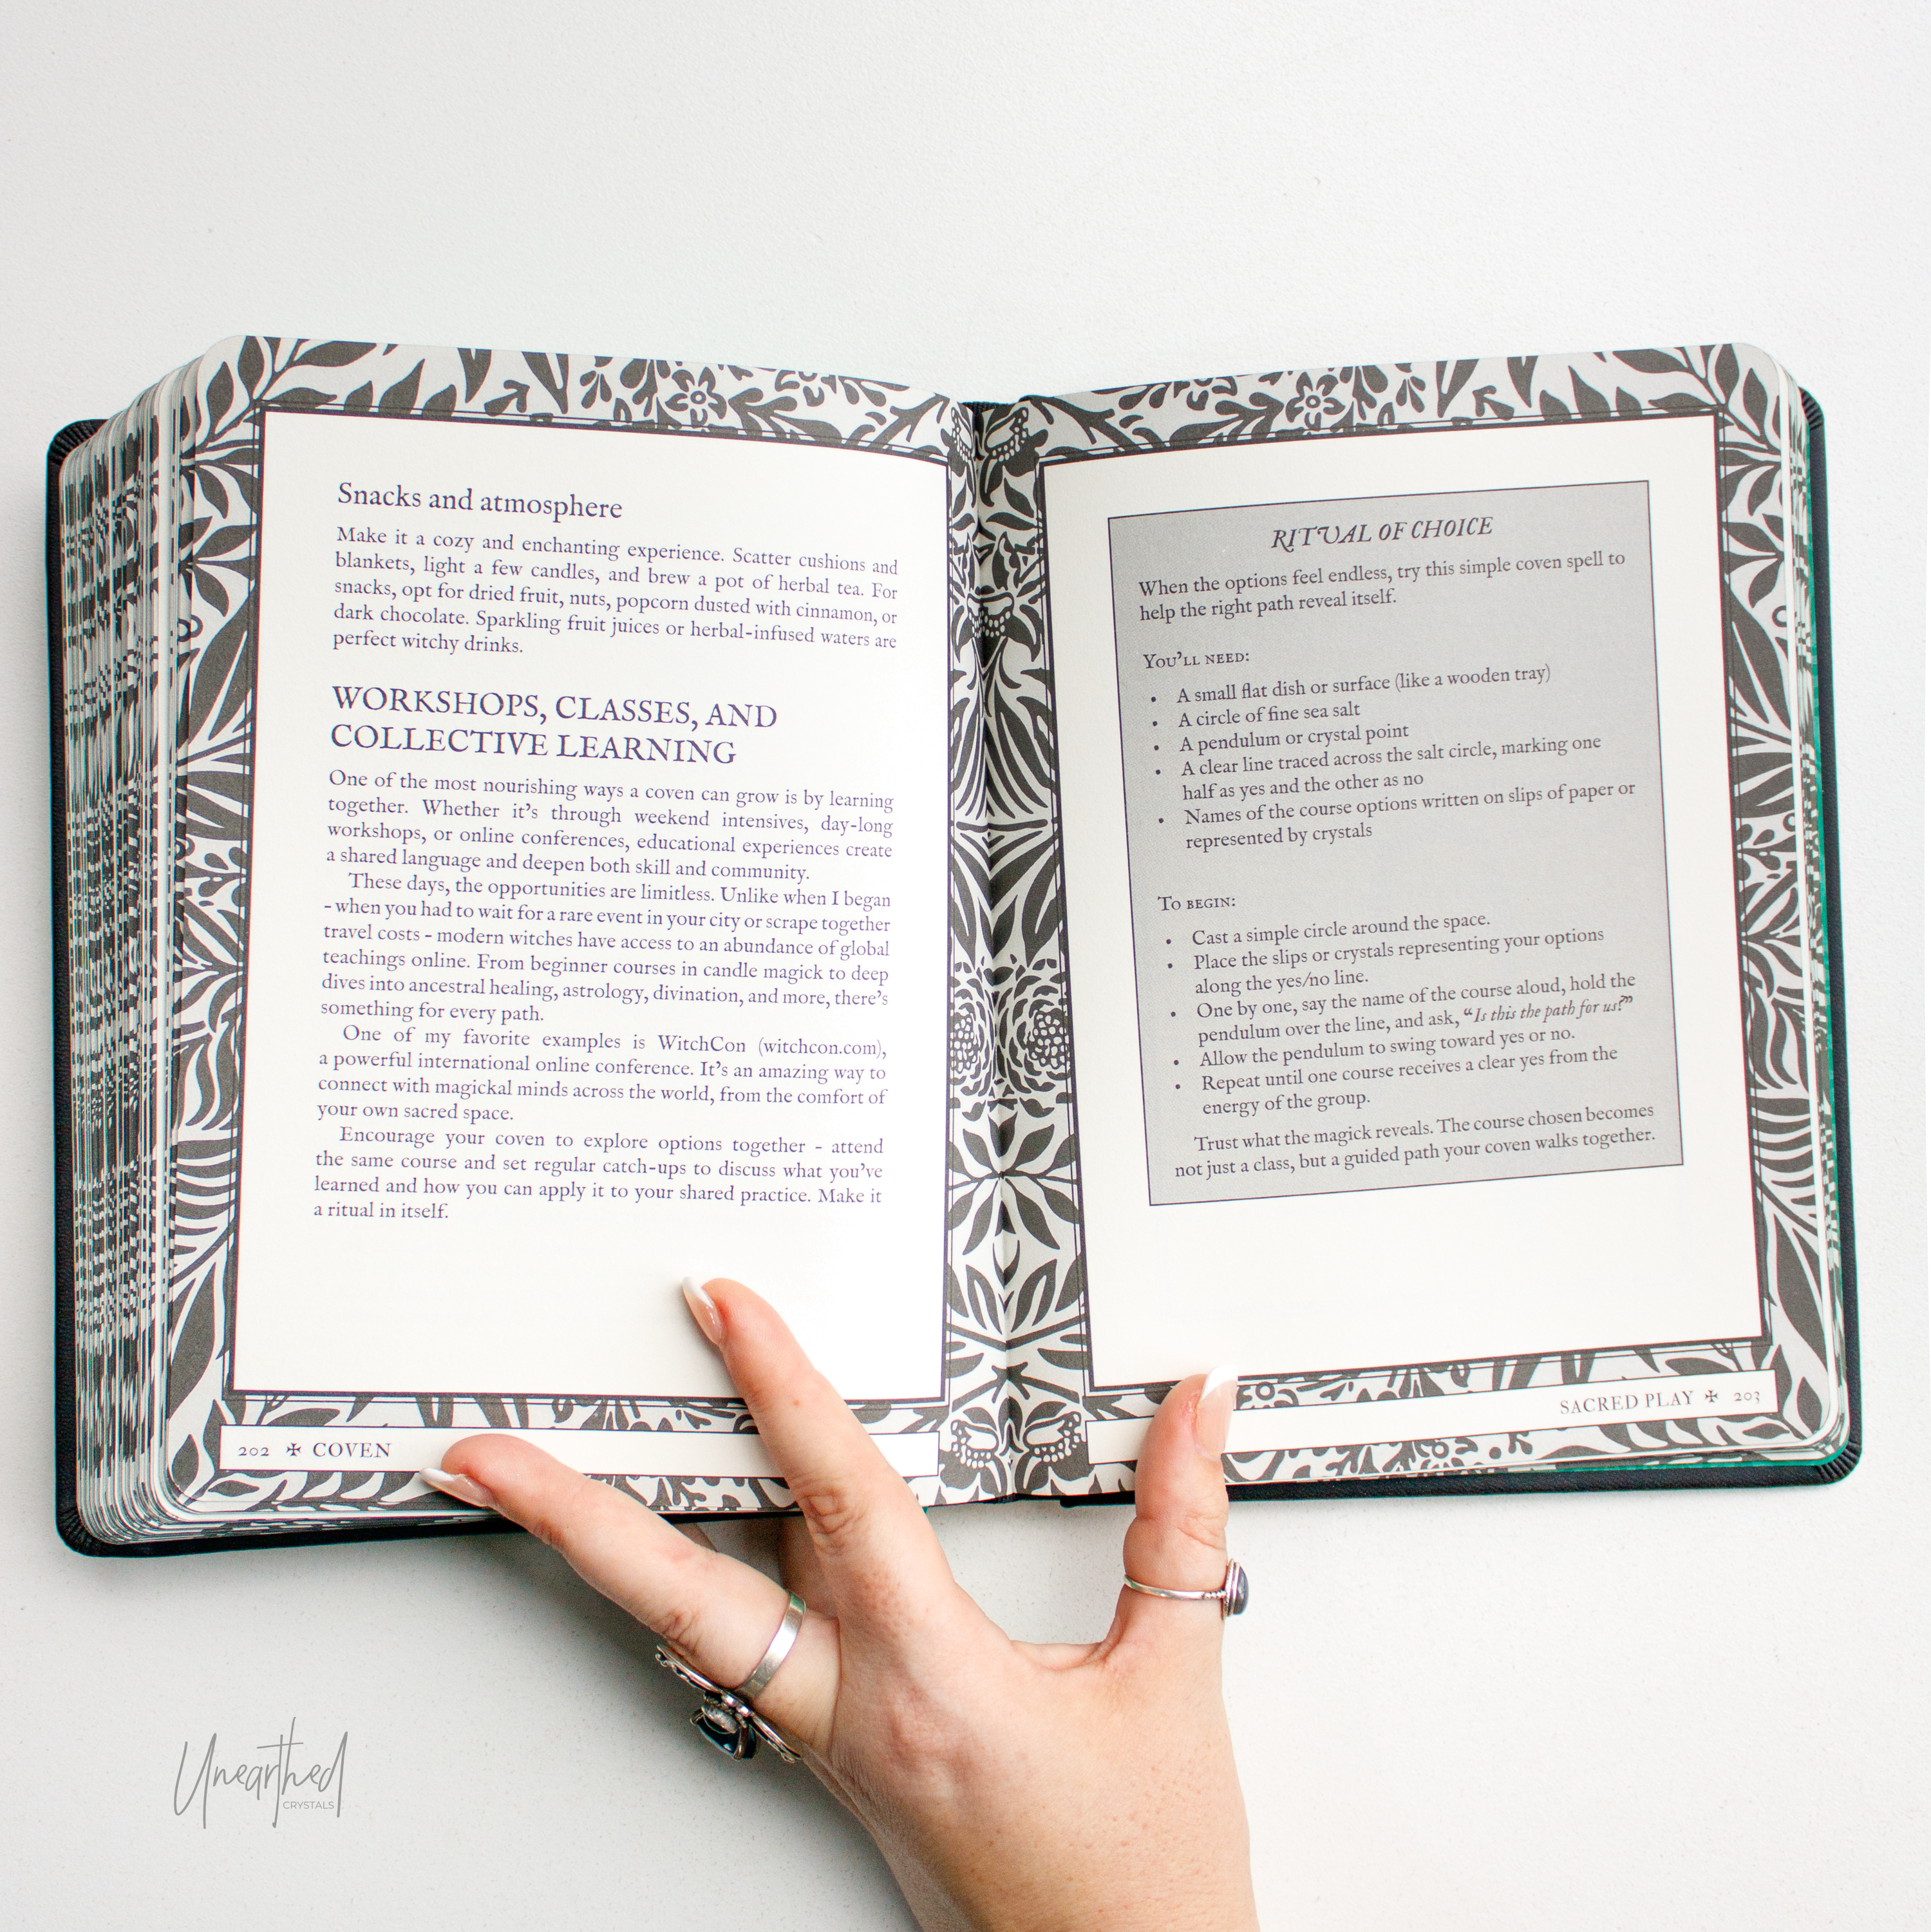 Snacks and atmosphere
Make it a cozy and enchanting experience. Scatter cushions and
blankets, light a few candles, and brew a pot of herbal tea. For
snacks, opt for dried fruit, nuts, popcorn dusted with cinnamon, or
dark chocolate. Sparkling fruit juices or herbal-infused waters are
perfect witchy drinks.
WORKSHOPS, CLASSES, AND
COLLECTIVE LEARNING
One of the most nourishing ways a coven can grow is by learning
together. Whether it's through weekend intensives, day-long
workshops, or online conferences, educational experiences create
a shared language and deepen both skill and community.
These days, the opportunities are limitless. Unlike when I began
- when you had to wait for a rare event in your city or scrape together
travel costs - modern witches have access to an abundance of global
teachings online. From beginner courses in candle magick to deep
dives into ancestral healing, astrology, divination, and more, there's
something for every path.
One of my favorite examples is WitchCon (witchcon.com),
a powerful international online conference. It's an amazing way to
connect with magickal minds across the world, from the comfort of
your own sacred space.
Encourage your coven to explore options together - attend
the same course and set regular catch-ups to discuss what you've
learned and how you can apply it to your shared practice. Make it
a ritual in itself.
202 ✠ COVEN
RITUAL OF CHOICE
When the options feel endless, try this simple coven spell to
help the right path reveal itself.
YOU'LL NEED:
• A small flat dish or surface (like a wooden tray)
• A circle of fine sea salt
• A pendulum or crystal point
• A clear line traced across the salt circle, marking one
half as yes and the other as no
• Names of the course options written on slips of paper or
represented by crystals
TO BEGIN:
• Cast a simple circle around the space.
• Place the slips or crystals representing your options
along the yes/no line.
• One by one, say the name of the course aloud, hold the
pendulum over the line, and ask, "Is this the path for us?"
• Allow the pendulum to swing toward yes or no.
• Repeat until one course receives a clear yes from the
energy of the group.
Trust what the magick reveals. The course chosen becomes
not just a class, but a guided path your coven walks together.
SACRED PLAY ✠ 203
Unearthed
CRYSTALS